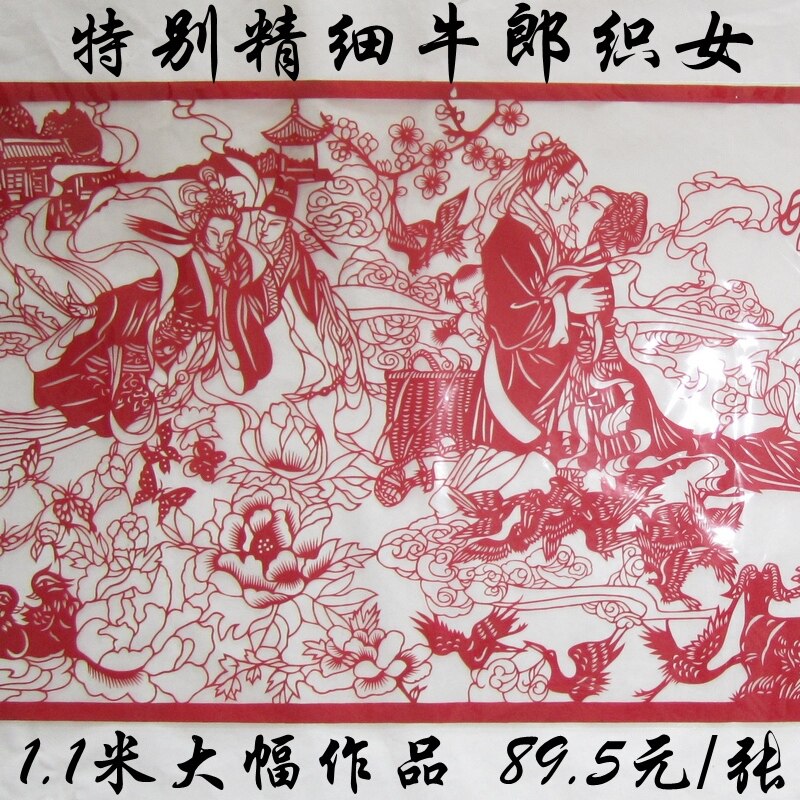 特别精细牛郎织女
1.1米大幅作品 89.5元/张